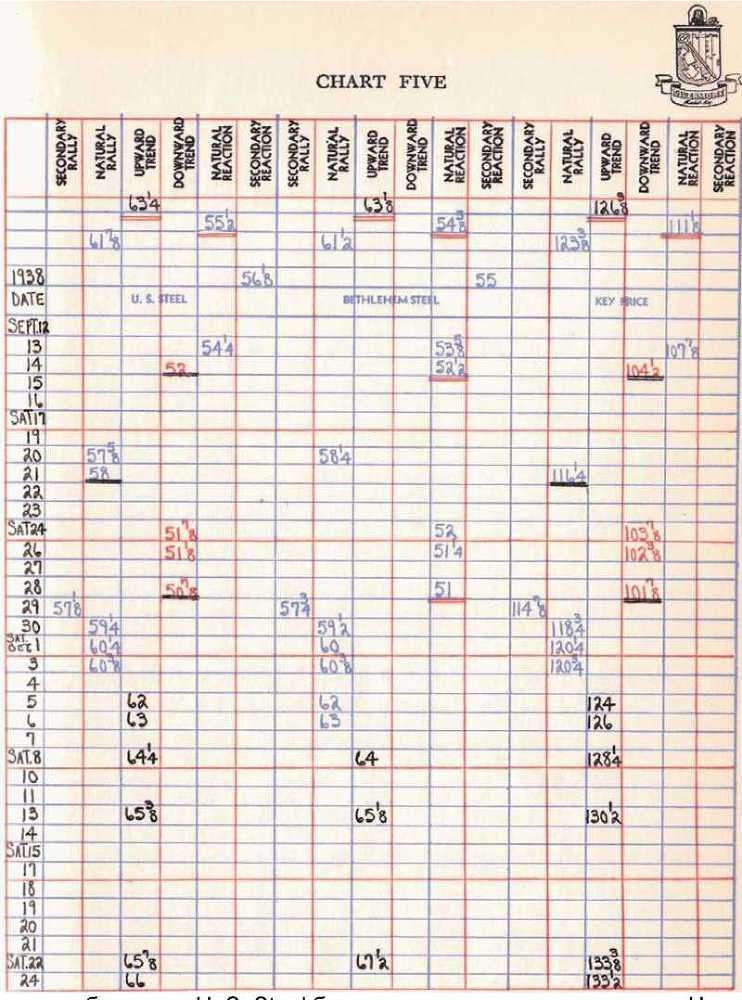 CHART FIVE
SECONDARY RALLY NATURAL RALLY UPWARD TREND DOWNWARD TREND NATURAL REACTION SECONDARY REACTION SECONDARY RALLY NATURAL RALLY UPWARD TREND DOWNWARD TREND NATURAL REACTION SECONDARY REACTION SECONDARY RALLY NATURAL RALLY UPWARD TREND DOWNWARD TREND NATURAL REACTION SECONDARY REACTION
63 1/4 63 1/8
55 1/2 111 1/8
61 7/8 61 1/2 123 3/8
1938 56 1/8 55
DATE U. S. STEEL BETHLEHEM STEEL KEY PRICE
SEPT.12
13 54 1/4 53 5/8 107 7/8
14 52 52 1/2 104 1/2
15
16
SAT.17
19
20 57 5/8 58 1/4
21 58 116 1/4
22
23
SAT.24 51 7/8 52 103 7/8
26 51 1/8 51 1/4 102 3/8
27
28 50 7/8 51 101 7/8
29 57 1/8 57 3/4 114 7/8
30 59 1/4 59 1/2 118 3/4
SAT. OCT 1 60 1/4 60 120 1/4
3 60 3/8 60 3/8 120 3/4
4
5 62 62 124
6 63 63 126
7
SAT.8 64 1/4 64 128 1/4
10
11
13 65 3/8 65 1/8 130 1/2
14
SAT.15
17
18
19
20
21
SAT.22 65 7/8 67 1/2 133 3/8
24 66 133 1/2